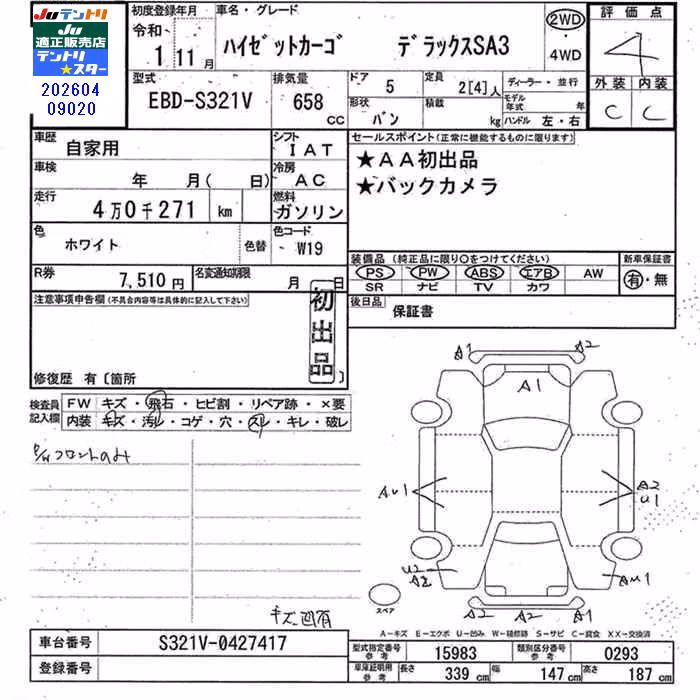 JUテントリ
JU
適正販売店
テントリ
★スター
202604
09020
初度登録年月
令和
1 11月
車名・グレード
ハイゼットカーゴ デラックスSA3
2WD
・
4WD
評価点
4
外装 内装
C C
型式
EBD-S321V
排気量
658 CC
ドア
5
形状
バン
定員
2[4]人
積載
kg
ディーラー・並行
モデル年式 年
ハンドル 左・右
車歴
自家用
シフト
IAT
車検
年 月( 日)
冷房
AC
走行
4万0千271 km
燃料
ガソリン
色
ホワイト
色替
色コード
W19
R券
7,510円
名変通知期限
月 日
セールスポイント(正常に機能するものに限ります)
★AA初出品
★バックカメラ
装備品(純正品に限り○をつけてください)
PS PW ABS エアB AW
SR ナビ TV カワ
新車保証書
有・無
後日品
保証書
注意事項申告欄(不具合内容等は具体的に記入して下さい)
初出品
修復歴 有〔箇所 〕
検査員記入欄
FW キズ・飛石・ヒビ割・リペア跡・×要
内装 キズ・汚レ・コゲ・穴・スレ・キレ・破レ
P/Wフロントのみ
キズ凹有
A1 A2
A1
AU1
A2
U1
U2
A2
AU1
スペア
A2 A2 A1
A－キズ E－エクボ U－凹み W－補修跡 S－サビ C－腐食 XX－交換済
車台番号
S321V-0427417
登録番号
型式指定番号
参考
15983
類別区分番号
参考
0293
車庫証明用
参考
長さ 339 cm 幅 147 cm 高さ 187 cm